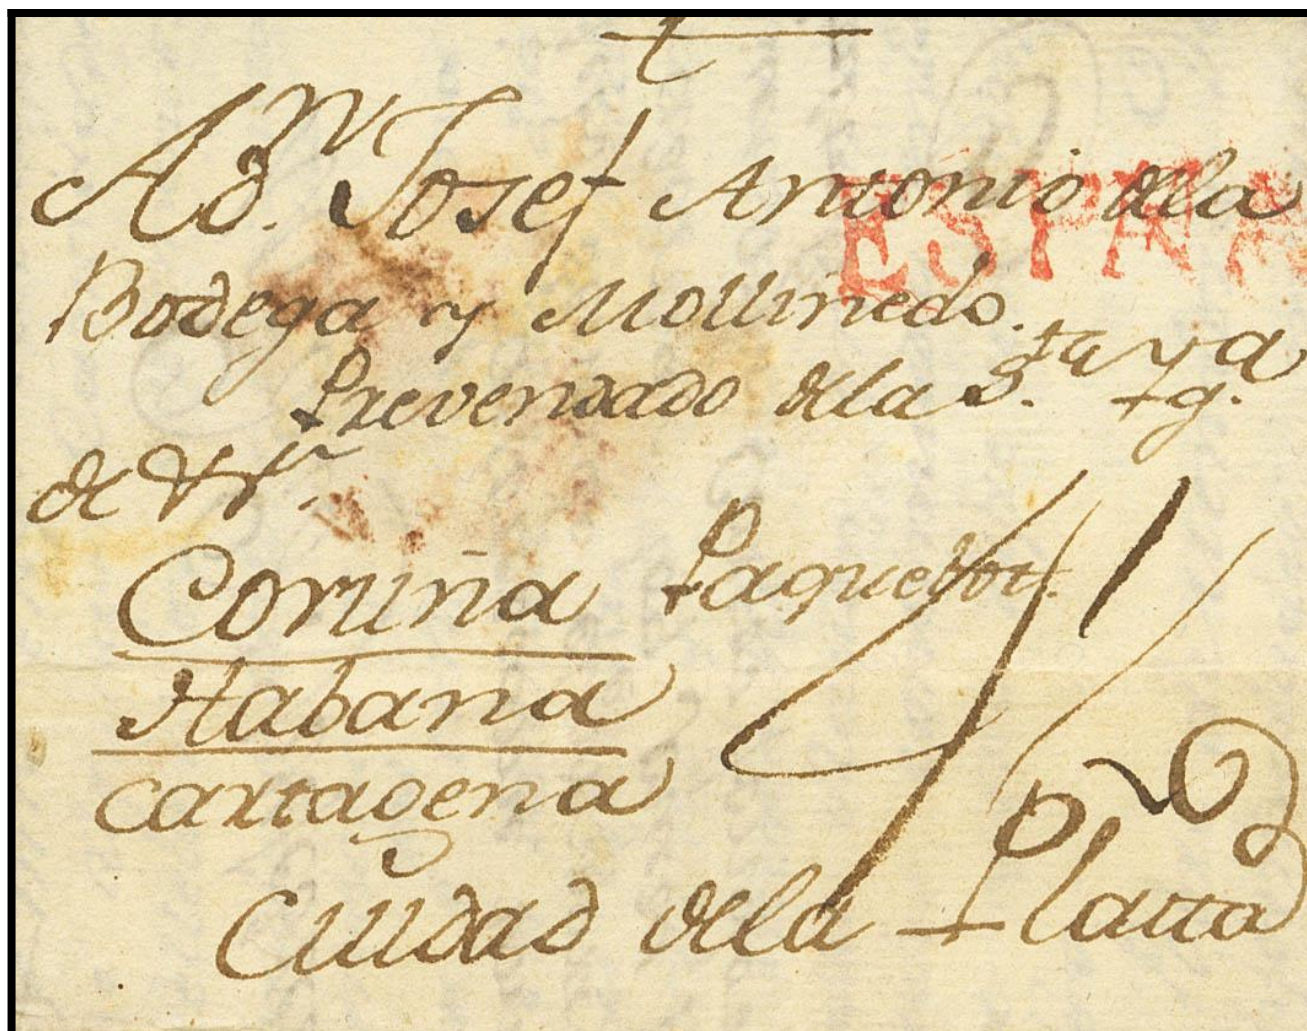 A Dn. Josef Antonio dela
ESPAÑA
Bodega y Mollinedo.
Prevendado dela S.ta Yg.a
de
Coruña Paquebot.
Habana
Cartagena
Ciudad dela Platta